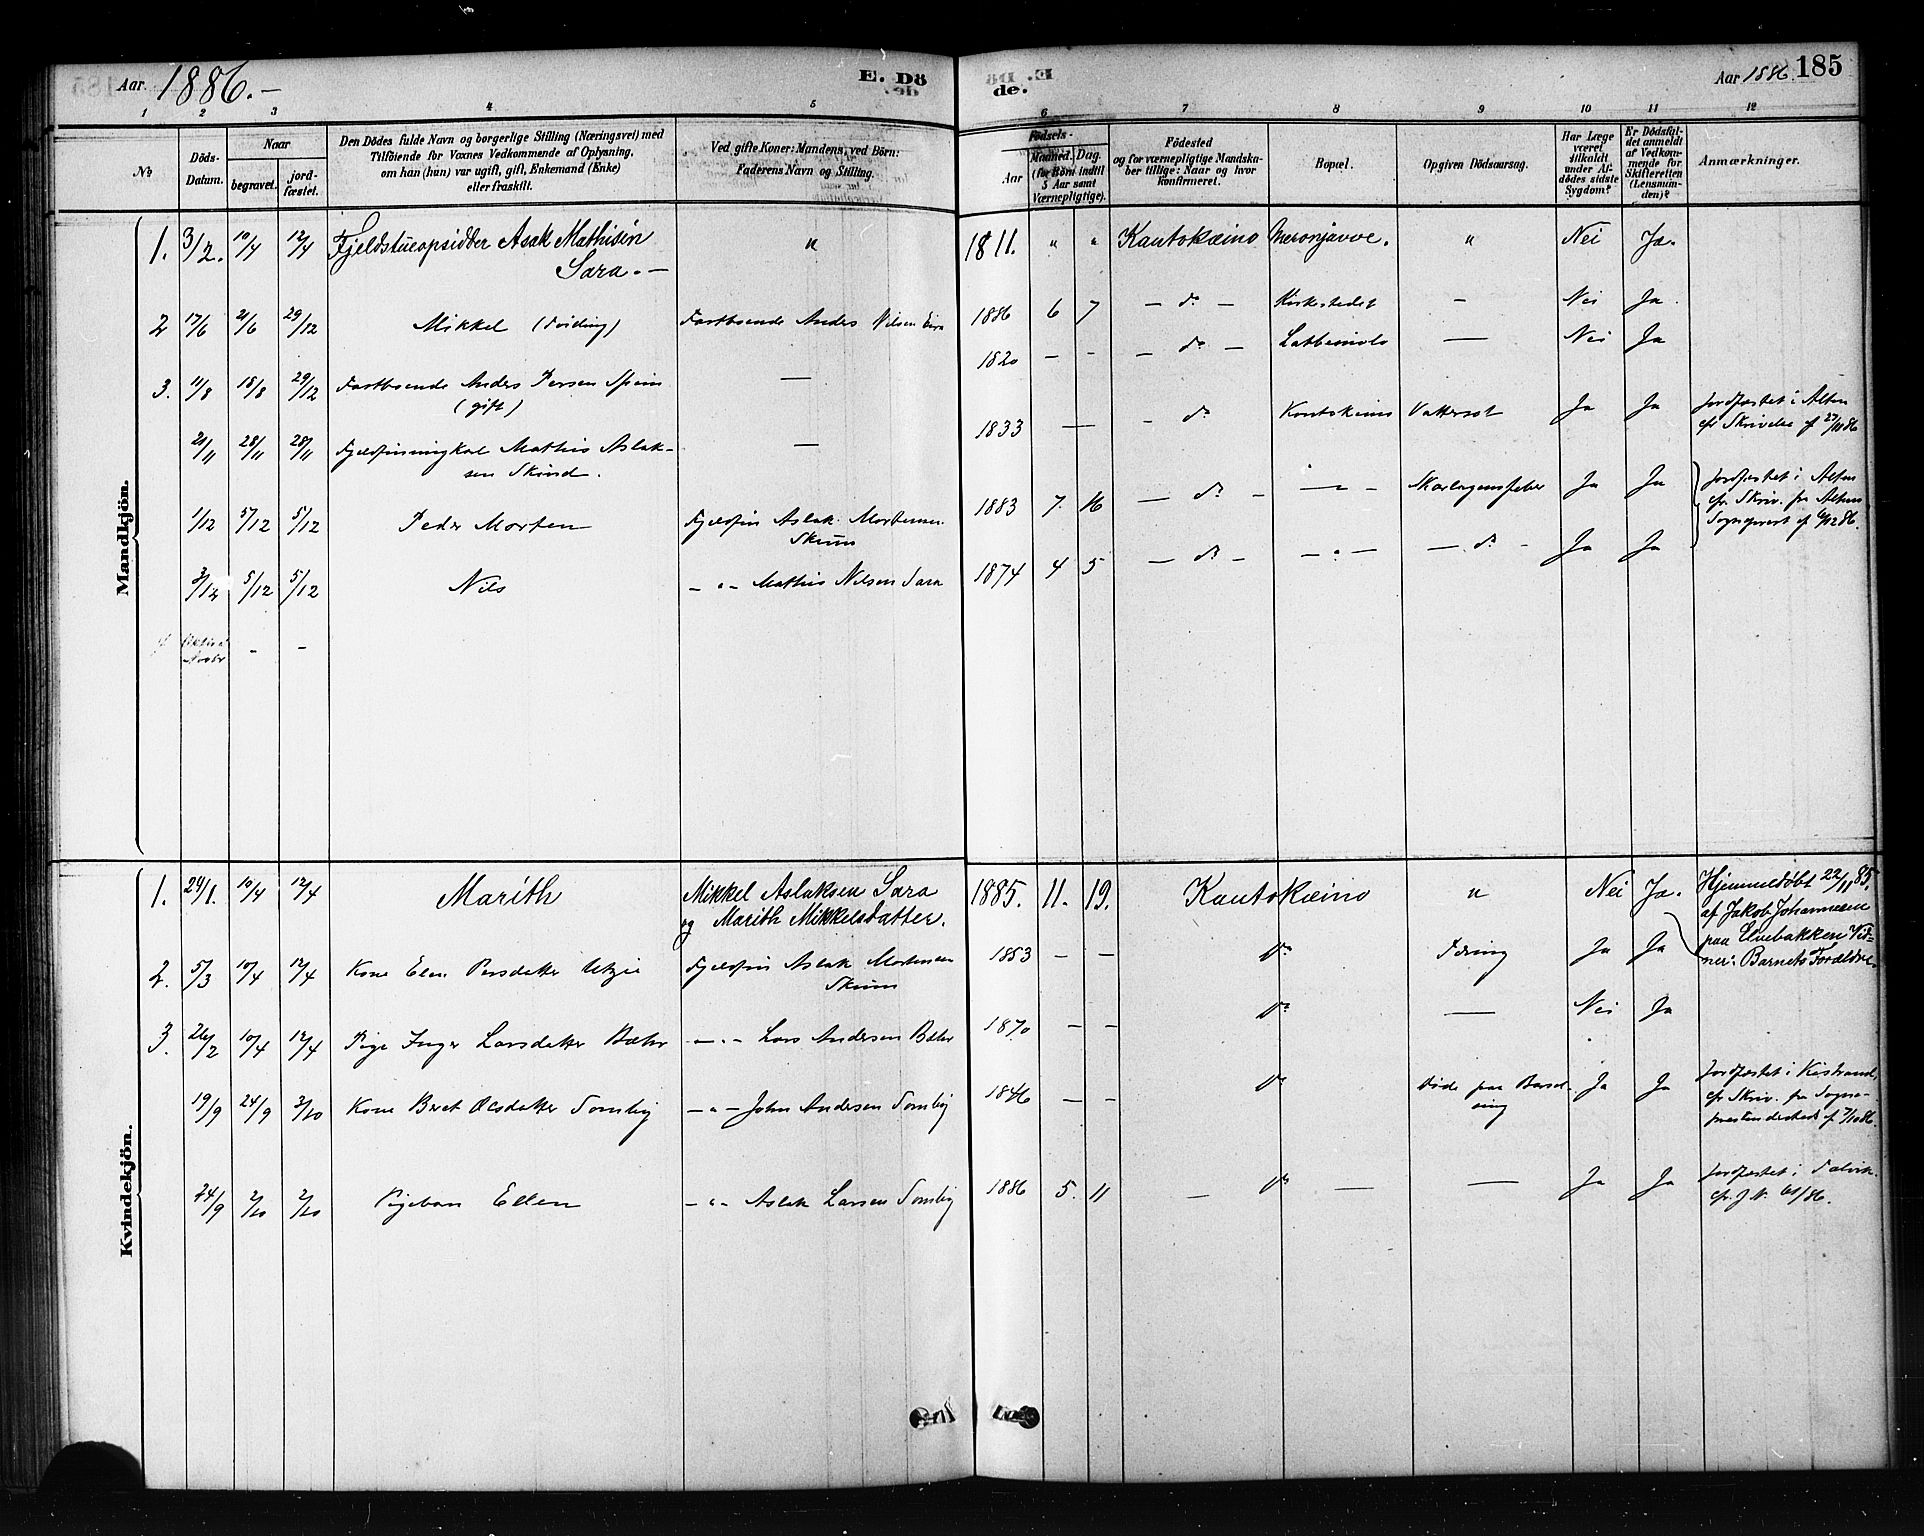 Aar 1886.–
E. Dö
de.
Aar 1886. 185
1 2 3 4 5 6 7 8 9 10 11 12
No
Döds-Datum.
Naar
begravet.
jord-fæstet.
Den Dödes fulde Navn og borgerlige Stilling (Næringsvei) med
Tilföiende for Voxnes Vedkommende af Oplysning,
om han (hun) var ugift, gift, Enkemand (Enke)
eller fraskilt.
Ved gifte Koner: Mandens, ved Börn:
Faderens Navn og Stilling.
Födsels-
Aar
Maaned. Dag.
(for Börn indtil
5 Aar samt
Værnepligtige).
Födested
og for værnepligtige Mandska-
ber tillige: Naar og hvor
Konfirmeret.
Bopæl.
Opgiven Dödsaarsag.
Har Læge
været
tilkaldt
under Af-
dödes sidste
Sygdom?
Er Dödsfal-
det anmeldt
af Vedkom-
mende for
Skifteretten
(Lensman-
den)?
Anmærkninger.
Mandkjön.
1. 3/2. 10/4 12/4 Fjeldstueopsidder Asak Mathisen " 1811. " " Kautokæino " Nei Ja.
Sara.–
2 17/6 21/6 29/12 Mikkel Fastboende Anders Nilsen 1886 6 7 – do – Kirkestedet – Nei Ja.
3. 11/8 18/8 29/12 Fastboende Anders Persen — 1820 – – – do – — Nei Ja
(gift)
20/11 28/11 28/11 Mathis Aslak- — 1833 — – do Ja Ja Jordfæstet i Alten
sen
efr Skrivelse af 27/11 86
1/12 5/12 5/12 Peder Morten Fjeldfin Aslak Mortensen 1883 7. 16 – do – – " – Skarlagensfeber Ja Ja Jordfæstet i Alten
Skum
efr. Skriv. fra Altens
3/12 5/12 5/12 Nils – " – Mathis Nilsen Sara 1874 4 5 – do – – " – – do – Ja Ja
4 – –
Kvindekjön.
1. 24/1. 10/4 12/4 Marith Mikkel Aslaksen Sara 1885. 11. 19. Kautokæino " Nei Ja. Hjemmedöbt 22/11 85.
og Marith Mikkelsdatter.
af Jakob Johannesen
2. 5/3 10/4 12/4 Kone Elen Persdatter Fjeldfin Aslak Mortensen 1853 – – do Tæring Ja Ja
Skum
ner: Barnets Forældre.
3. 26/2 10/4 12/4 Pige Inger Larsdatter Bæhr – " – Lars Andersen Bæhr 1870 – – do — Nei Ja
19/9 24/9 3/10 Kone Beret Olsdatter – " – John Andersen 1846 – – do Døde paa Barsel- Ja Ja Jordfæstet i Kistrand,
efr. Skriv. fra Sogne-
24/9 2/10 2/10 Pigebarn Ellen – " – Aslak Larsen 1886 5. 11 – do – — Ja Ja Jordfæstet i Talvik.